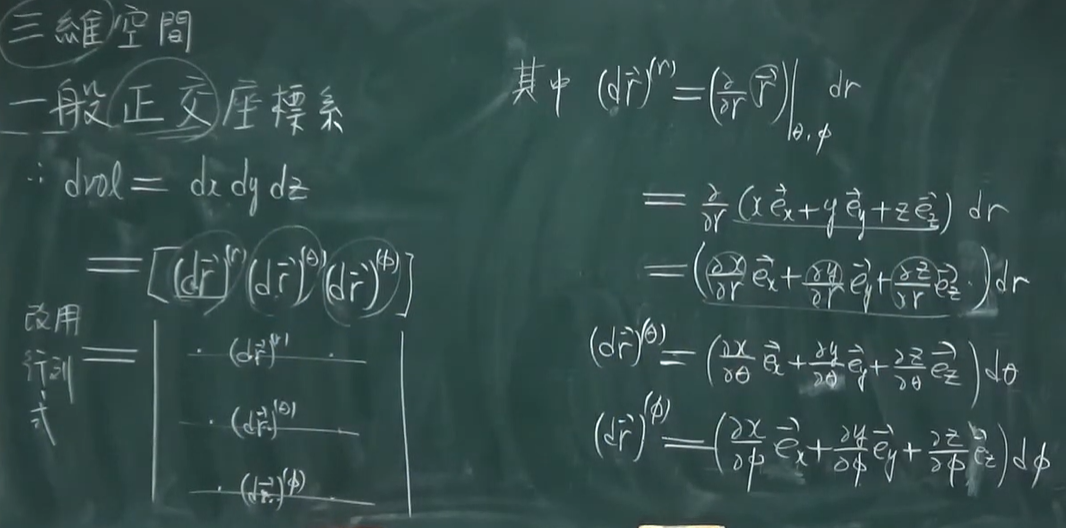 三維空間
一般正交座標系
∴ dvol = dx dy dz
= [(dr⃗)^(r) (dr⃗)^(θ) (dr⃗)^(ϕ)]
改用
行列
式
= | (dr⃗)^(r)
(dr⃗)^(θ)
(dr⃗)^(ϕ) |
其中 (dr⃗)^(r) = (∂/∂r r⃗)|_θ,ϕ dr
= ∂/∂r (x e⃗_x + y e⃗_y + z e⃗_z) dr
= (∂x/∂r e⃗_x + ∂y/∂r e⃗_y + ∂z/∂r e⃗_z) dr
(dr⃗)^(θ) = (∂x/∂θ e⃗_x + ∂y/∂θ e⃗_y + ∂z/∂θ e⃗_z) dθ
(dr⃗)^(ϕ) = (∂x/∂ϕ e⃗_x + ∂y/∂ϕ e⃗_y + ∂z/∂ϕ e⃗_z) dϕ